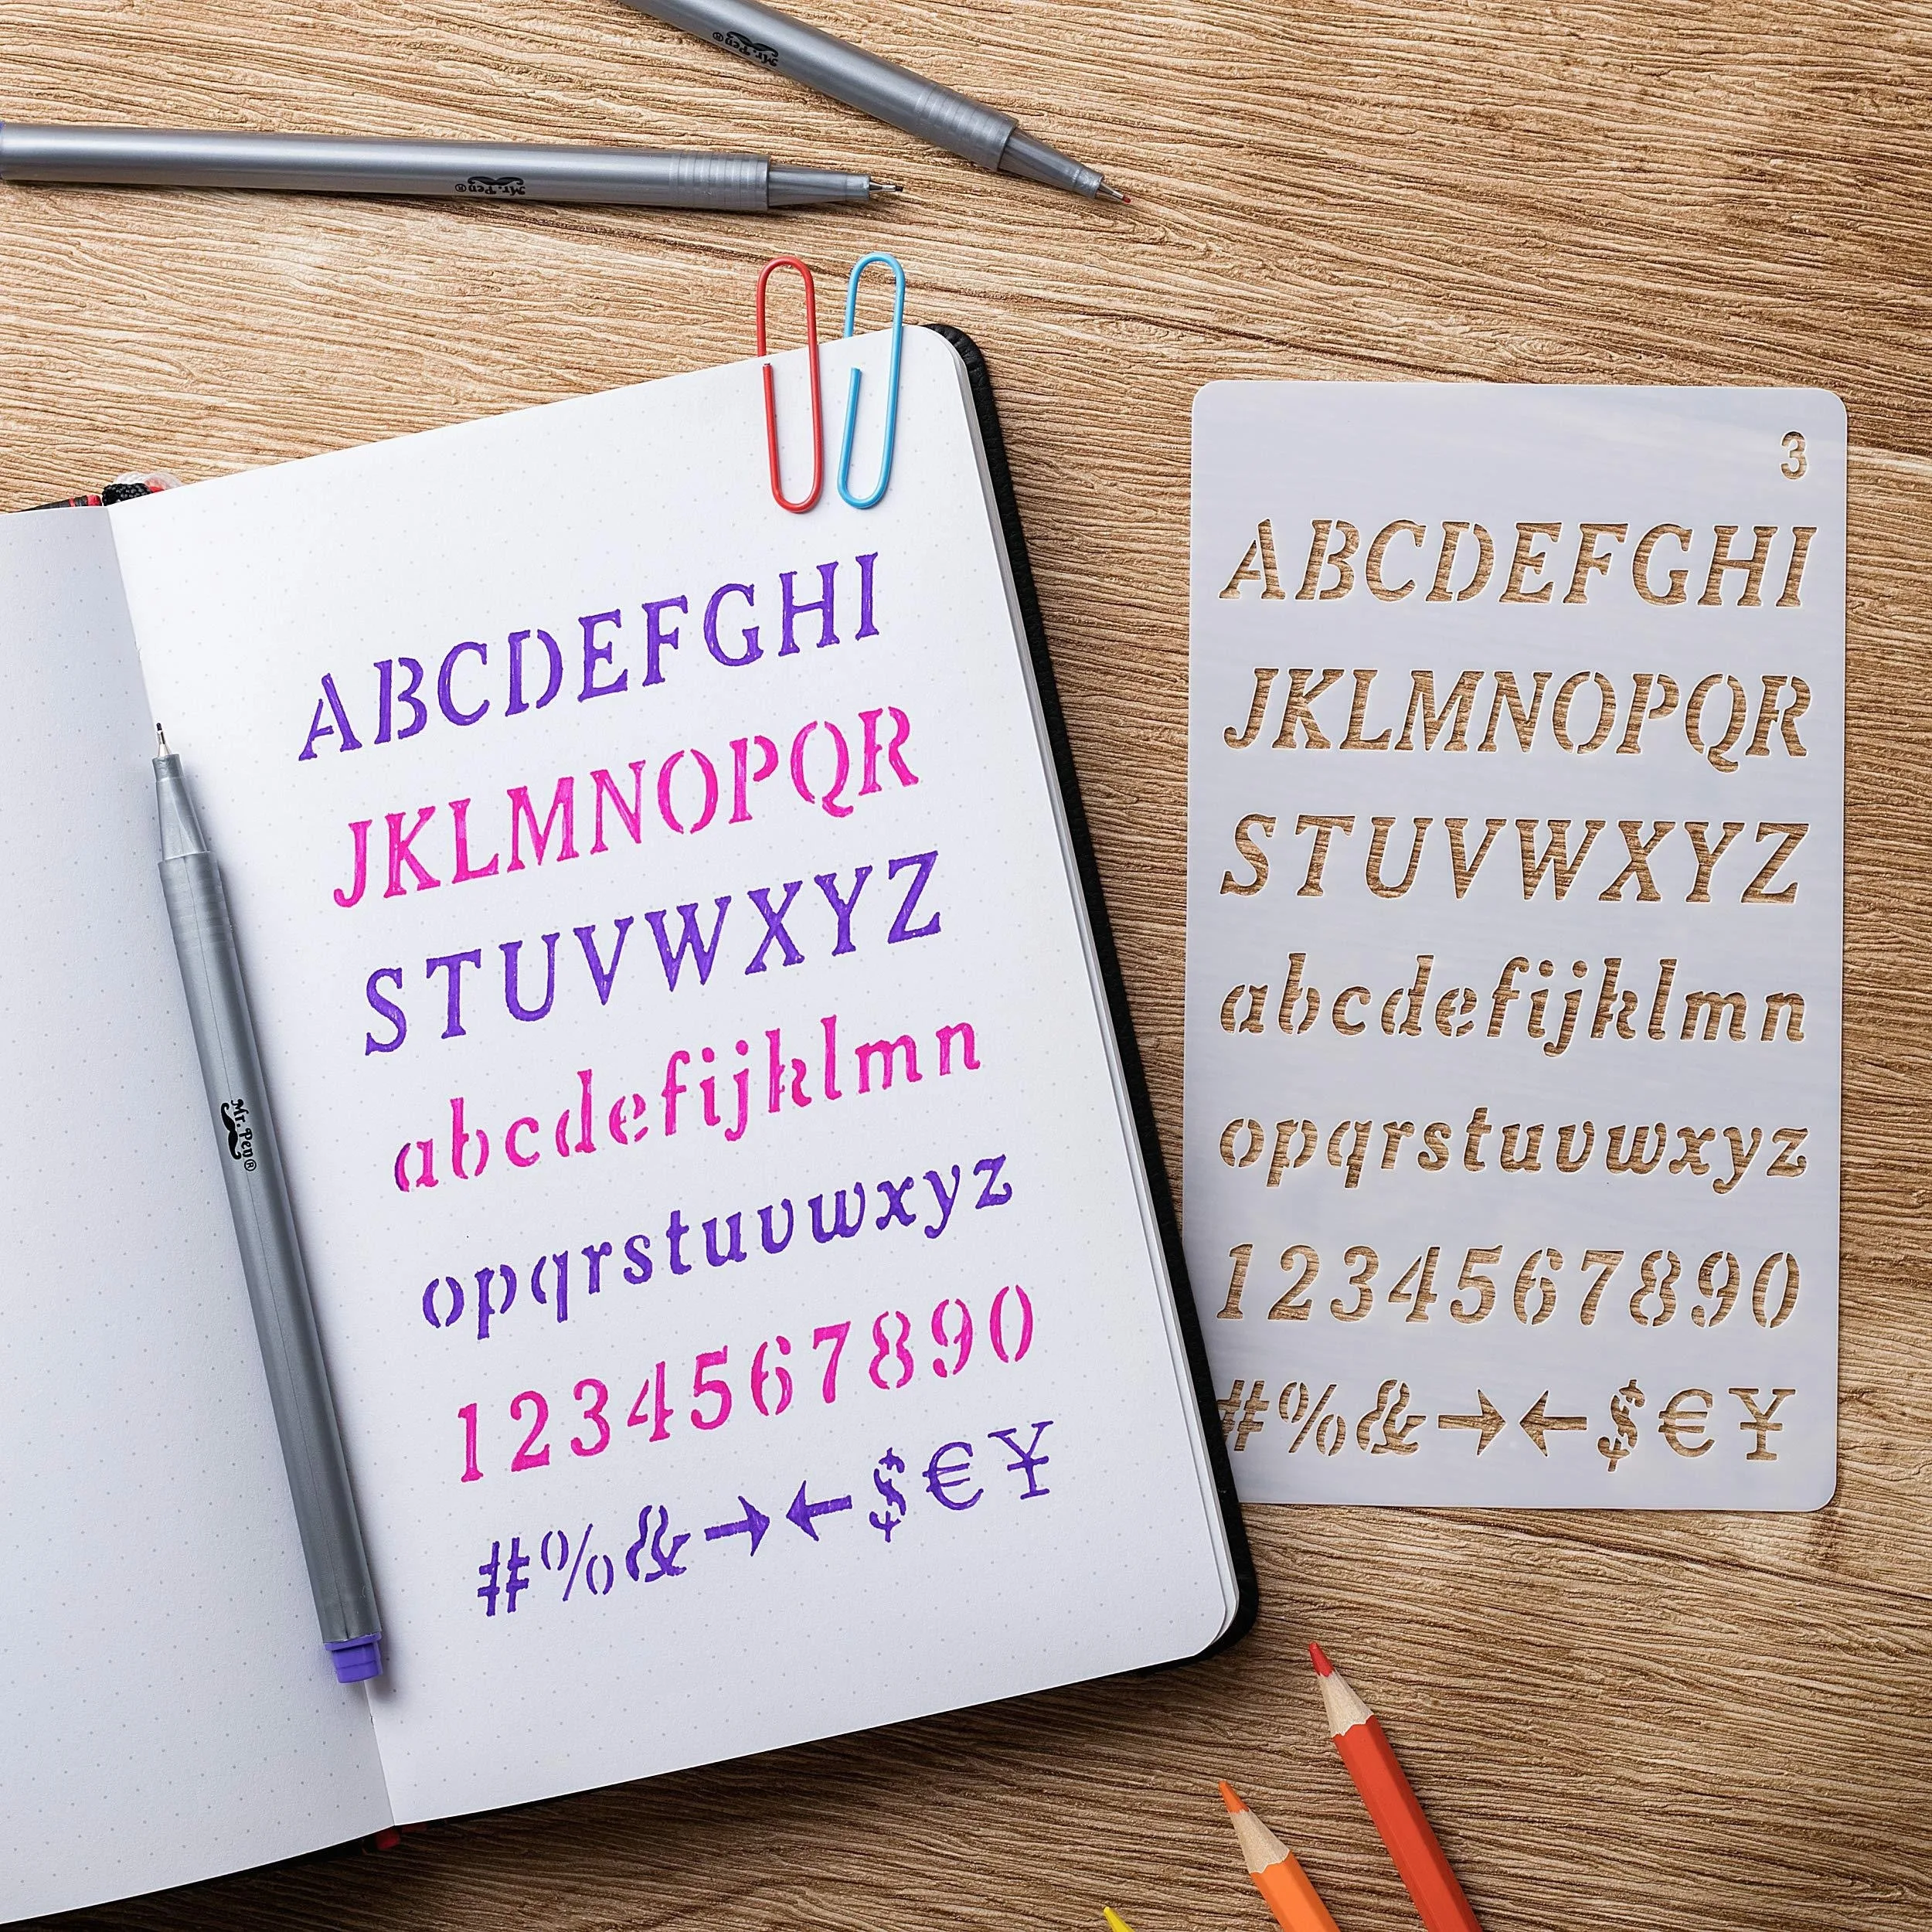 Mr. Pen®
Mr. Pen®
ABCDEFGHI
JKLMNOPQR
STUVWXYZ
abcdefijklmn
opqrstuvwxyz
1234567890
#%&→←$€¥
Mr. Pen®
3
ABCDEFGHI
JKLMNOPQR
STUVWXYZ
abcdefijklmn
opqrstuvwxyz
1234567890
#%&→←$€¥